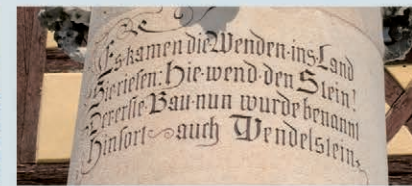 Es·kamen·die·Wenden·ins·Land
Sie·riefen: Hie·wend·den·Stein!
Der·erste·Bau·nun·wurde·benannt
Hinfort~auch Wendelstein.